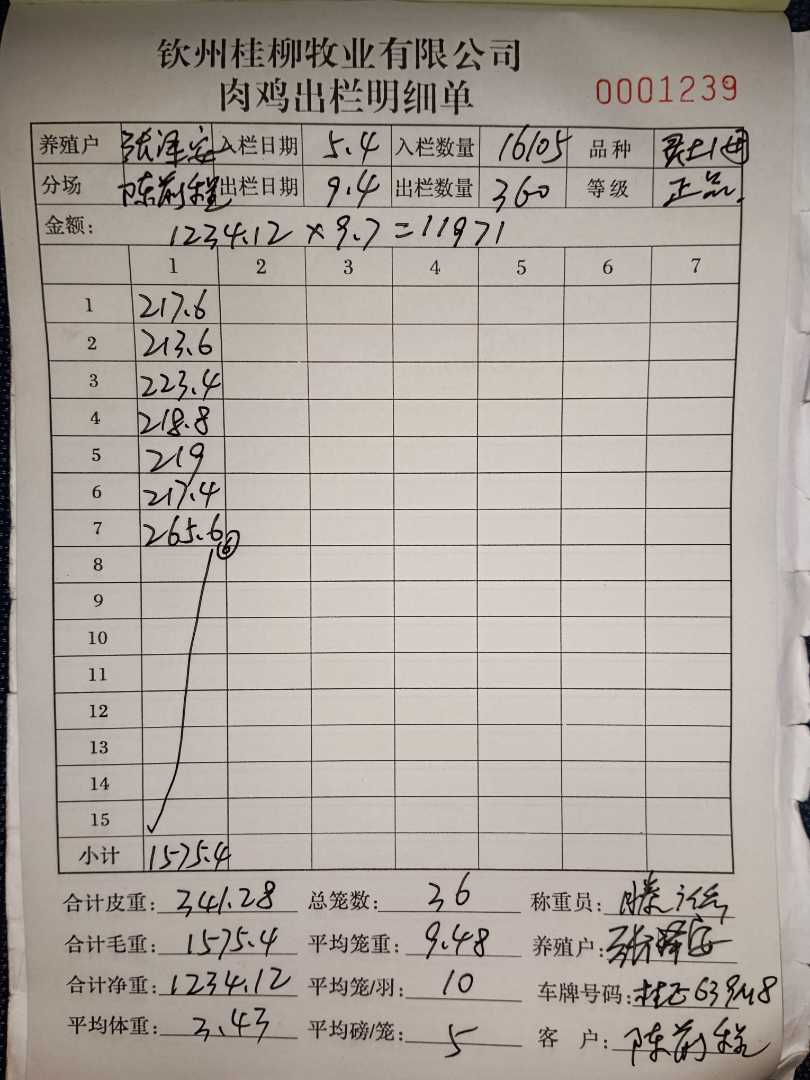 钦州桂柳牧业有限公司
肉鸡出栏明细单 0001239
养殖户 张泽安 入栏日期 5.4 入栏数量 16105 品种
分场 陈前程 出栏日期 9.4 出栏数量 360 等级 正品.
金额: 1234.12×9.7=11971
1 2 3 4 5 6 7
1 217.6
2 213.6
3 223.4
4 218.8
5 219
6 217.4
7 265.6 ⑥
8
9
10
11
12
13
14
15
小计 1575.4
合计皮重: 341.28 总笼数: 36 称重员:
合计毛重: 1575.4 平均笼重: 9.48 养殖户: 张泽安
合计净重: 1234.12 平均笼/羽: 10 车牌号码:
平均体重: 3.43 平均磅/笼: 5 客 户: 陈前程